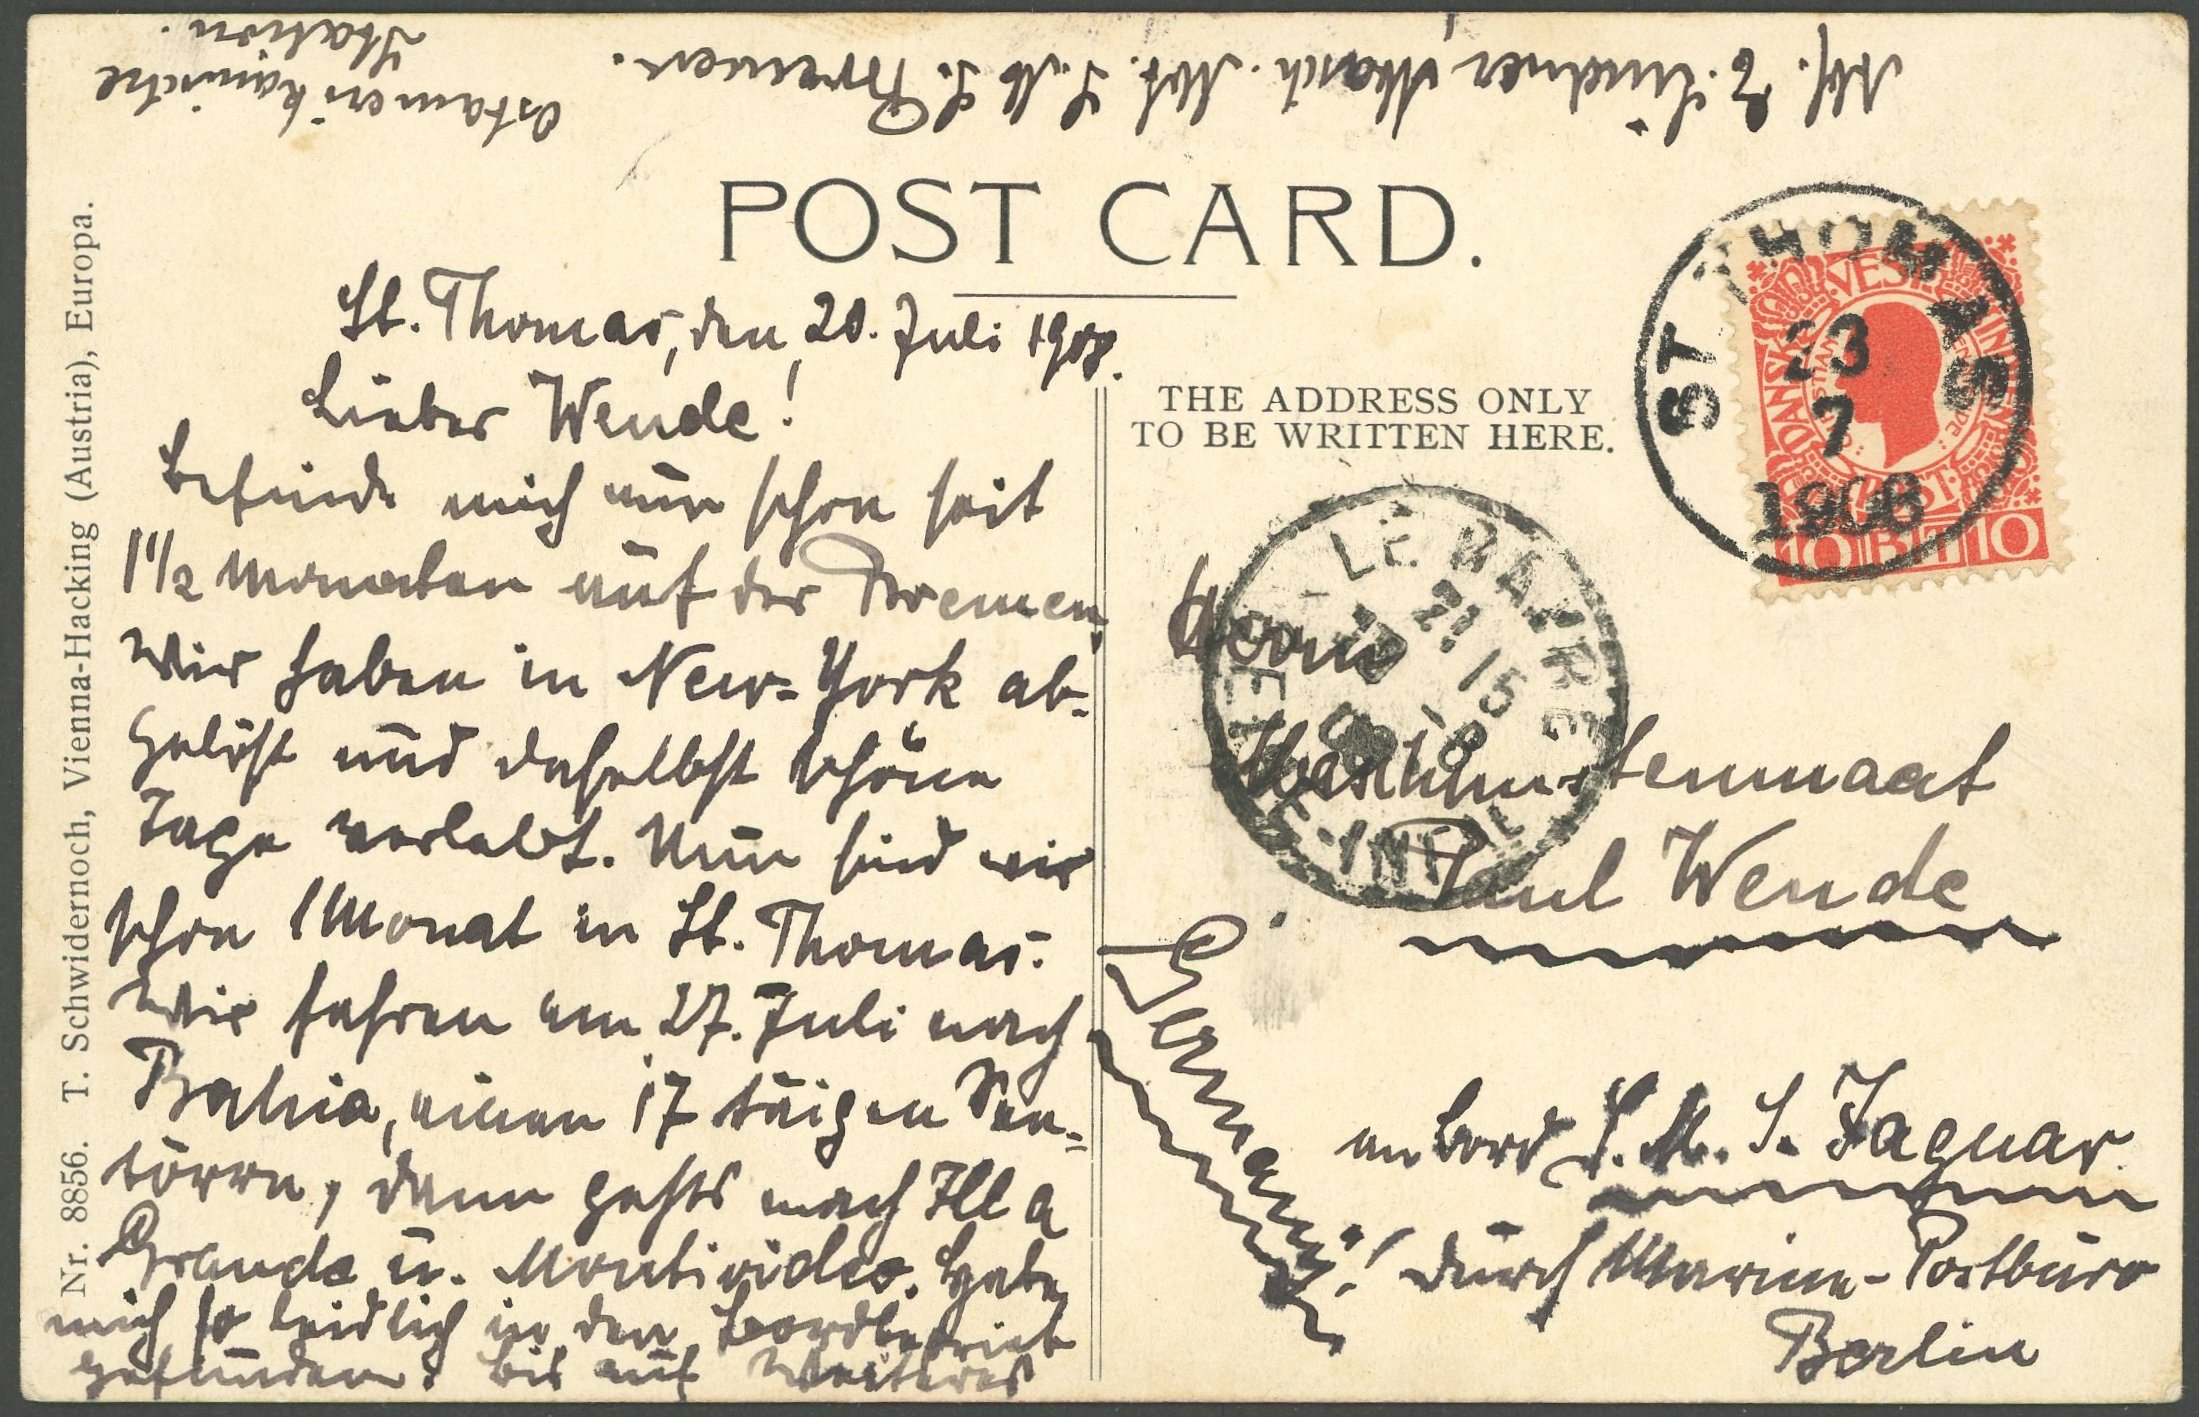 Abs. E. Lindner Masch. Mt. S. M. S. Bremen.
Ostamerikanische
Station.
POST CARD.
St. Thomas, den 20. Juli 1908.
Lieber Wende!
Befinde mich nun schon seit
1 1/2 Monaten auf der Bremen,
Wir haben in New-York ab-
gelöst und daselbst schöne
Tage verlebt. Nun sind wir
schon 1 Monat in St. Thomas.
Wir fahren am 27. Juli nach
Bahia, einen 17 täigen
dann gehts nach Illa
Grande u. Montivideo. Habe
mich so leidlich in den Bordbetrieb
gefunden. Bis auf Weiteres
Nr. 8856. T. Schwidernoch, Vienna-Hacking (Austria), Europa.
THE ADDRESS ONLY
TO BE WRITTEN HERE.
ST THOMAS
23
7
1908
DANSK VESTINDIEN
POST
10 BIT 10
LE MAIRE
21 15
Herrn
Maschinistenmaat
Paul Wende
Germani!
an Bord S. M. S. Jaguar
durch Marine-Postbüro
Berlin